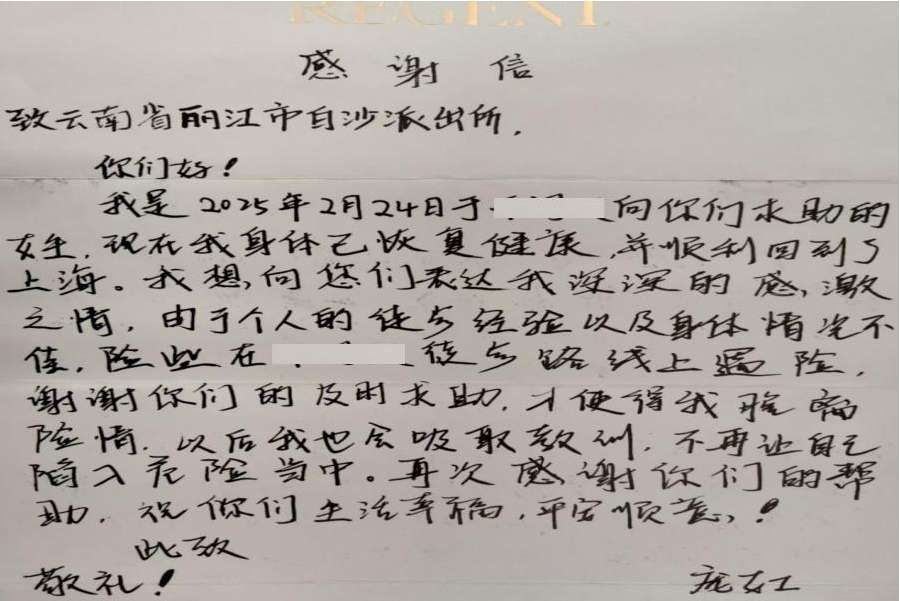 REGENT
感谢信
致云南省丽江市白沙派出所,
你们好!
我是2025年2月24日于向你们求助的
女生,现在我身体已恢复健康,并顺利回到了
上海。我想向您们表达我深深的感激
之情,由于个人的徒步经验以及身体情况不
佳,险些在徒步路线上遇险,
谢谢你们的及时求助,才使得我脱离
险情,以后我也会吸取教训,不再让自己
陷入危险当中。再次感谢你们的帮
助,祝你们生活幸福,平安顺意!
此致
敬礼!